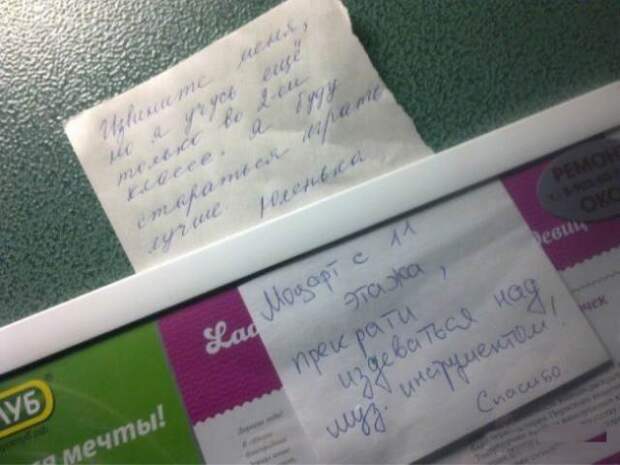 Извините меня,
но я учусь ещё
только во 2-ом
классе. Я буду
стараться играть
лучше Юленька
РЕМОН
ОКО
Моцарт с 11
этажа,
прекрати
издеваться над
муз. инструментом!
Спасибо
девиц
Lad
УБ
мечты!